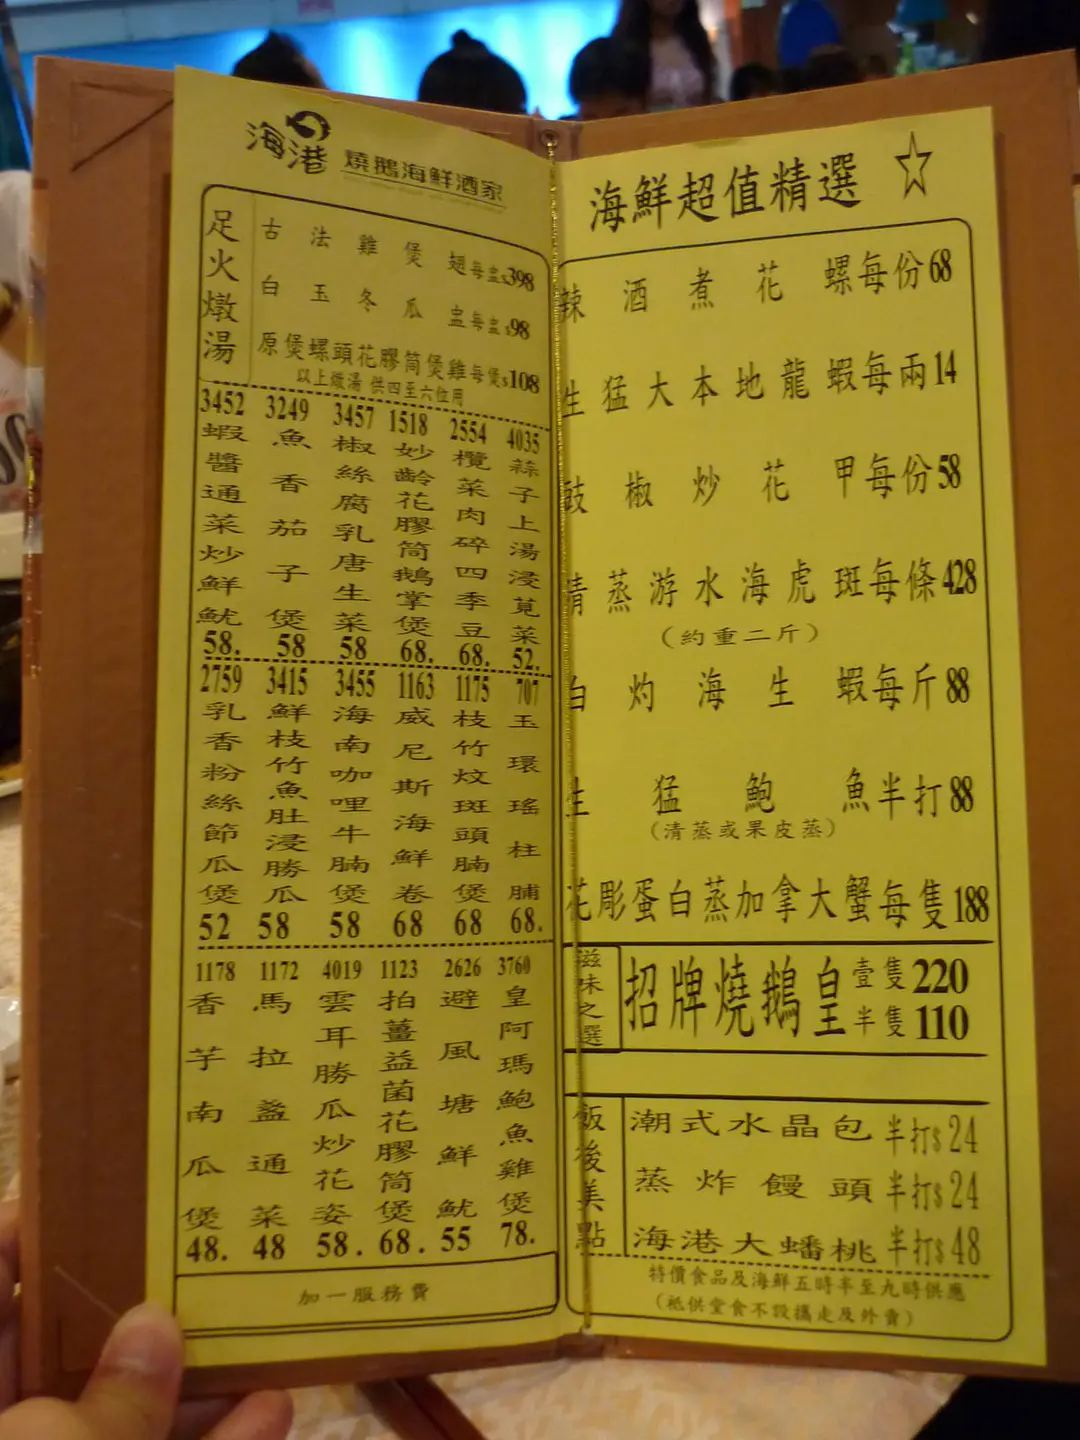 海港 燒鵝海鮮酒家
足火燉湯
古法雞煲翅每盅$398
白玉冬瓜盅每盅$98
原煲螺頭花膠筒煲雞每煲$108
以上燉湯 供四至六位用
3452 蝦醬通菜炒鮮魷 58.
3249 魚香茄子煲 58
3457 椒絲腐乳唐生菜 58
1518 妙齡花膠筒鵝掌煲 68.
2554 欖菜肉碎四季豆 68.
4035 蒜子上湯浸莧菜 52.
2759 乳香粉絲節瓜煲 52
3415 鮮枝竹魚肚浸勝瓜 58
3455 海南咖哩牛腩煲 58
1163 威尼斯海鮮卷 68
1175 枝竹炆斑頭腩煲 68
707 玉環瑤柱脯 68.
1178 香芋南瓜煲 48.
1172 馬拉盞通菜 48
4019 雲耳勝瓜炒花姿 58.
1123 拍薑益菌花膠筒煲 68.
2626 避風塘鮮魷 55
3760 皇阿瑪鮑魚雞煲 78.
加一服務費
海鮮超值精選 ☆
辣酒煮花螺每份68
生猛大本地龍蝦每兩14
豉椒炒花甲每份58
清蒸游水海虎斑每條428
(約重二斤)
白灼海生蝦每斤88
生猛鮑魚半打88
(清蒸或果皮蒸)
花彫蛋白蒸加拿大蟹每隻188
滋味之選
招牌燒鵝皇 壹隻220
半隻110
飯後美點
潮式水晶包 半打$24
蒸炸饅頭 半打$24
海港大蟠桃 半打$48
特價食品及海鮮五時半至九時供應
(祗供堂食不設攜走及外賣)